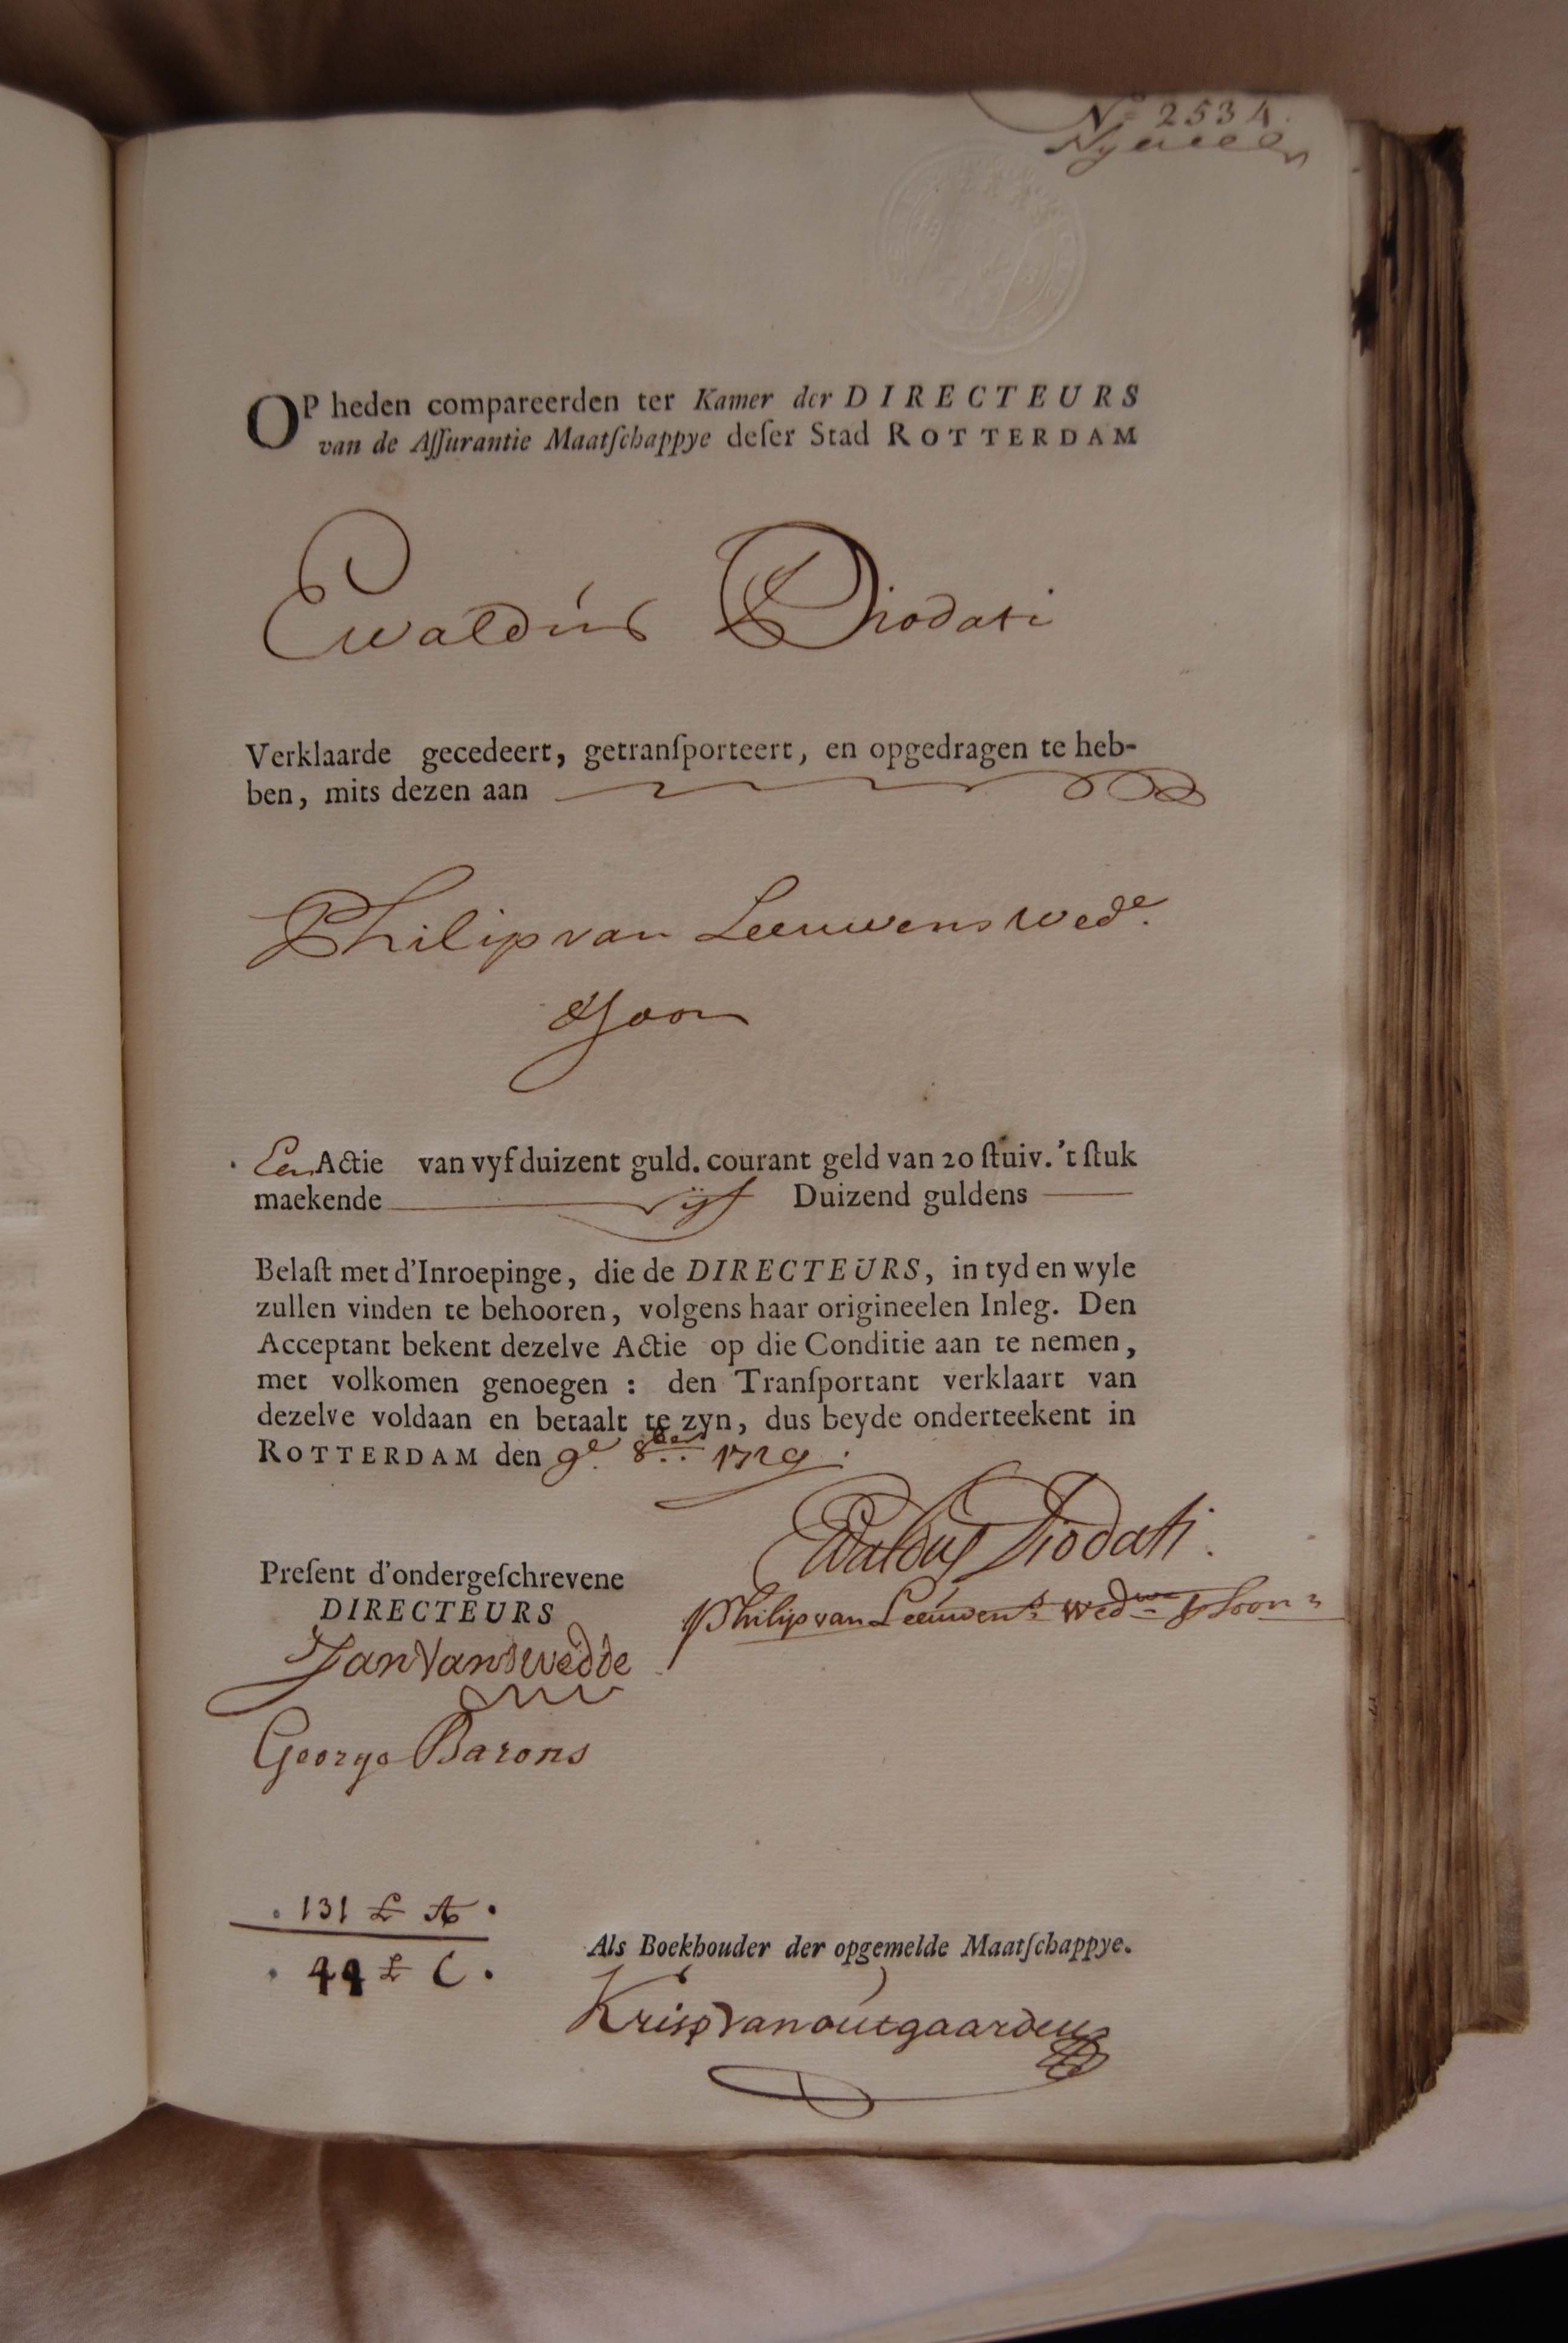 No 2534.
OP heden compareerden ter Kamer der DIRECTEURS
van de Aſſurantie Maatſchappye deſer Stad ROTTERDAM
Ewaldús Diodati
Verklaarde gecedeert, getranſporteert, en opgedragen te heb-
ben, mits dezen aan
Philip van Leeuwens Wede.
& Soon
Een Actie van vyf duizent guld. courant geld van 20 ſtuiv. 't ſtuk
maekende vijf Duizend guldens
Belaſt met d'Inroepinge, die de DIRECTEURS, in tyd en wyle
zullen vinden te behooren, volgens haar origineelen Inleg. Den
Acceptant bekent dezelve Actie op die Conditie aan te nemen,
met volkomen genoegen : den Tranſportant verklaart van
dezelve voldaan en betaalt te zyn, dus beyde onderteekent in
ROTTERDAM den 9e. 8ber 1729.
Ewaldus Diodati.
Philip van Leeúwens Wedwe & Soon
Preſent d'ondergeſchrevene
DIRECTEURS
Jan Van Swedde
George Barons
131 £ A.
44 £ C.
Als Boekhouder der opgemelde Maatſchappye.
Krisp Van outgaarden